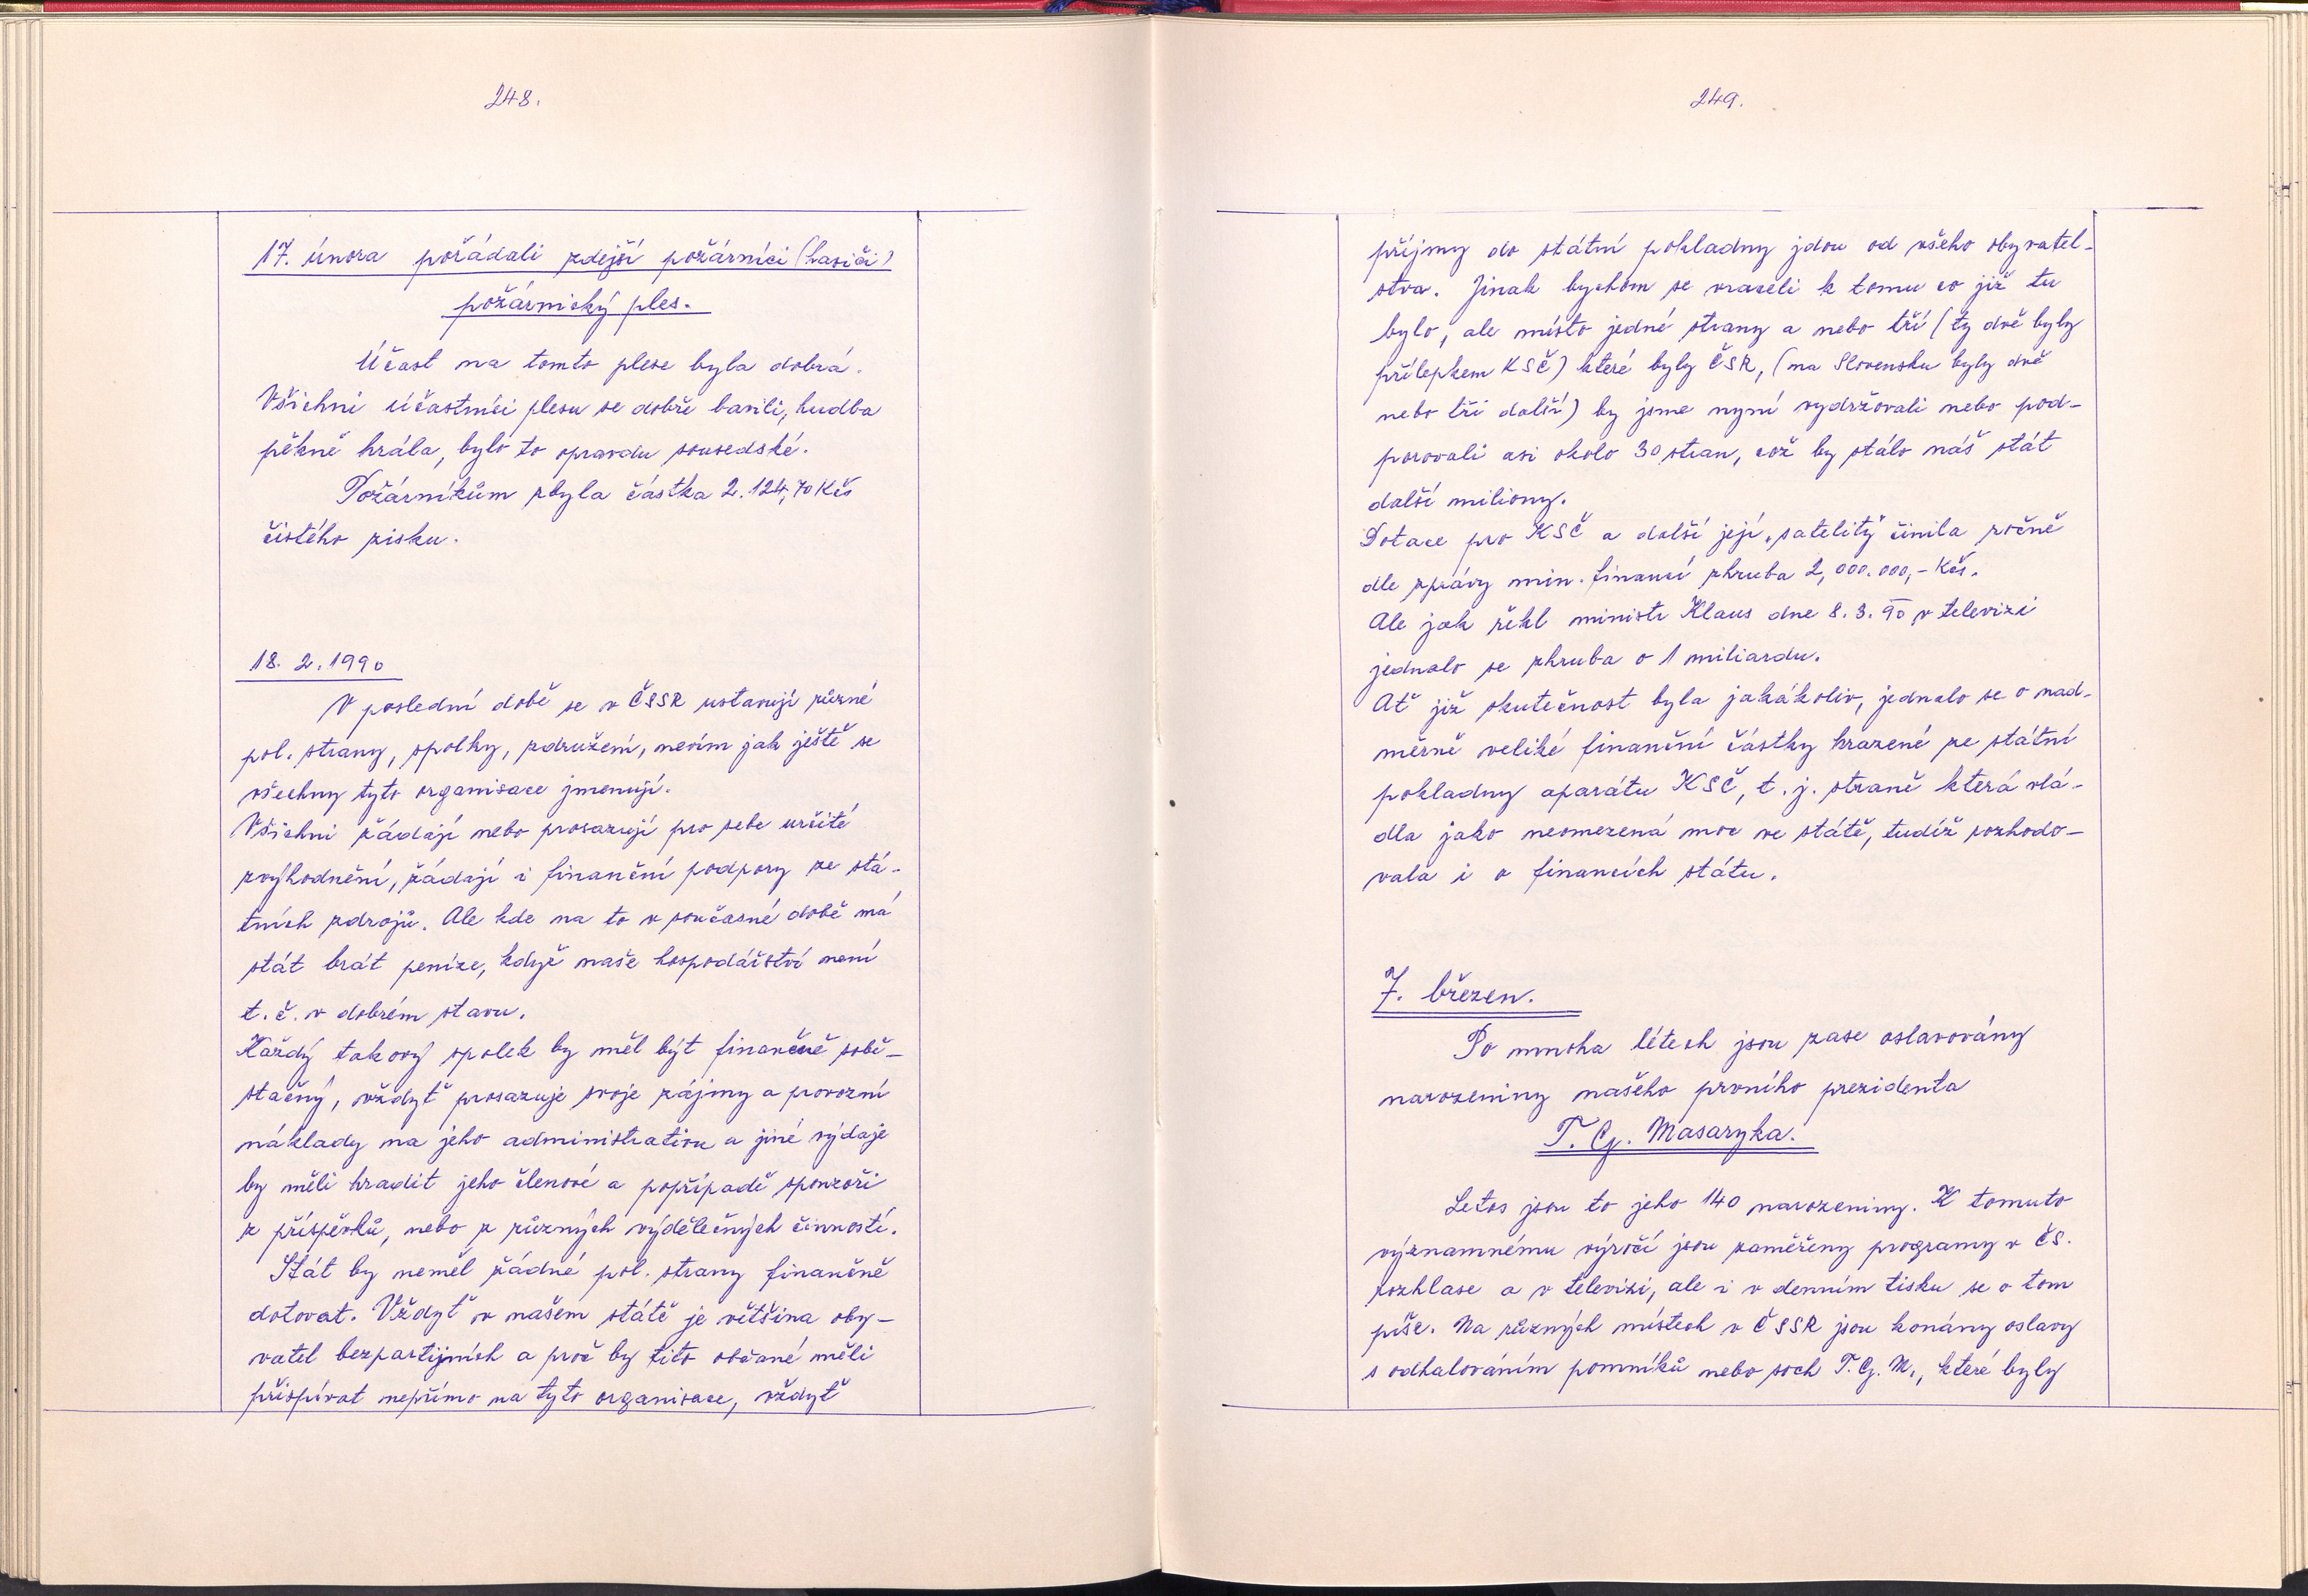 248.
17. února pořádali zdejší požárníci (hasiči)
požárnický ples.
Účast na tomto plese byla dobrá.
Všichni účastníci plesu se dobře bavili, hudba
pěkně hrála, bylo to opravdu sousedské.
Požárníkům zbyla částka 2.124,70 Kčs
čistého zisku.
18. 2. 1990
V poslední době se v ČSSR ustavují různé
pol. strany, spolky, združení, nevím jak ještě se
všechny tyto organisace jmenují.
Všichni žádají nebo prosazují pro sebe určité
zvýhodnění, žádají i finanční podpory ze stá-
tních zdrojů. Ale kde na to v současné době má
stát brát peníze, když naše hospodářství není
t. č. v dobrém stavu.
Každý takový spolek by měl být finančně sobě-
stačný, vždyť prosazuje svoje zájmy a provozní
náklady na jeho administrativu a jiné výdaje
by měli hradit jeho členové a popřípadě sponzoři
z příspěvků, nebo z různých výdělečných činností.
Stát by neměl žádné pol. strany finančně
dotovat. Vždyť v našem státě je většina oby-
vatel bezpartijních a proč by tito občané měli
přispívat nepřímo na tyto organisace, vždyť
249.
příjmy do státní pokladny jdou od všeho obyvatel-
stva. Jinak bychom se vraceli k tomu co již tu
bylo, ale místo jedné strany a nebo tří (ty dvě byly
přílepkem KSČ) které byly ČSR, (na Slovensku byly dvě
nebo tři další) by jsme nyní vydržovali nebo pod-
porovali asi okolo 30 stran, což by stálo náš stát
další miliony.
Dotace pro KSČ a další její „satelity“ činila ročně
dle zprávy min. financí zhruba 2,000.000,- Kčs.
Ale jak řekl ministr Klaus dne 8. 3. 90 v televizi
jednalo se zhruba o 1 miliardu.
Ať již skutečnost byla jakákoliv, jednalo se o nad-
měrně veliké finanční částky hrazené ze státní
pokladny aparátu KSČ, t. j. straně která vlá-
dla jako neomezená moc ve státě, tudíž rozhodo-
vala i o financích státu.
7. březen.
Po mnoha létech jsou zase oslavovány
narozeniny našeho prvního prezidenta
T. G. Masaryka.
Letos jsou to jeho 140 narozeniny. K tomuto
významnému výročí jsou zaměřeny programy v čs.
rozhlase a v televizi, ale i v denním tisku se o tom
píše. Na různých místech v ČSSR jsou konány oslavy
s odhalováním pomníků nebo soch T. G. M., které byly